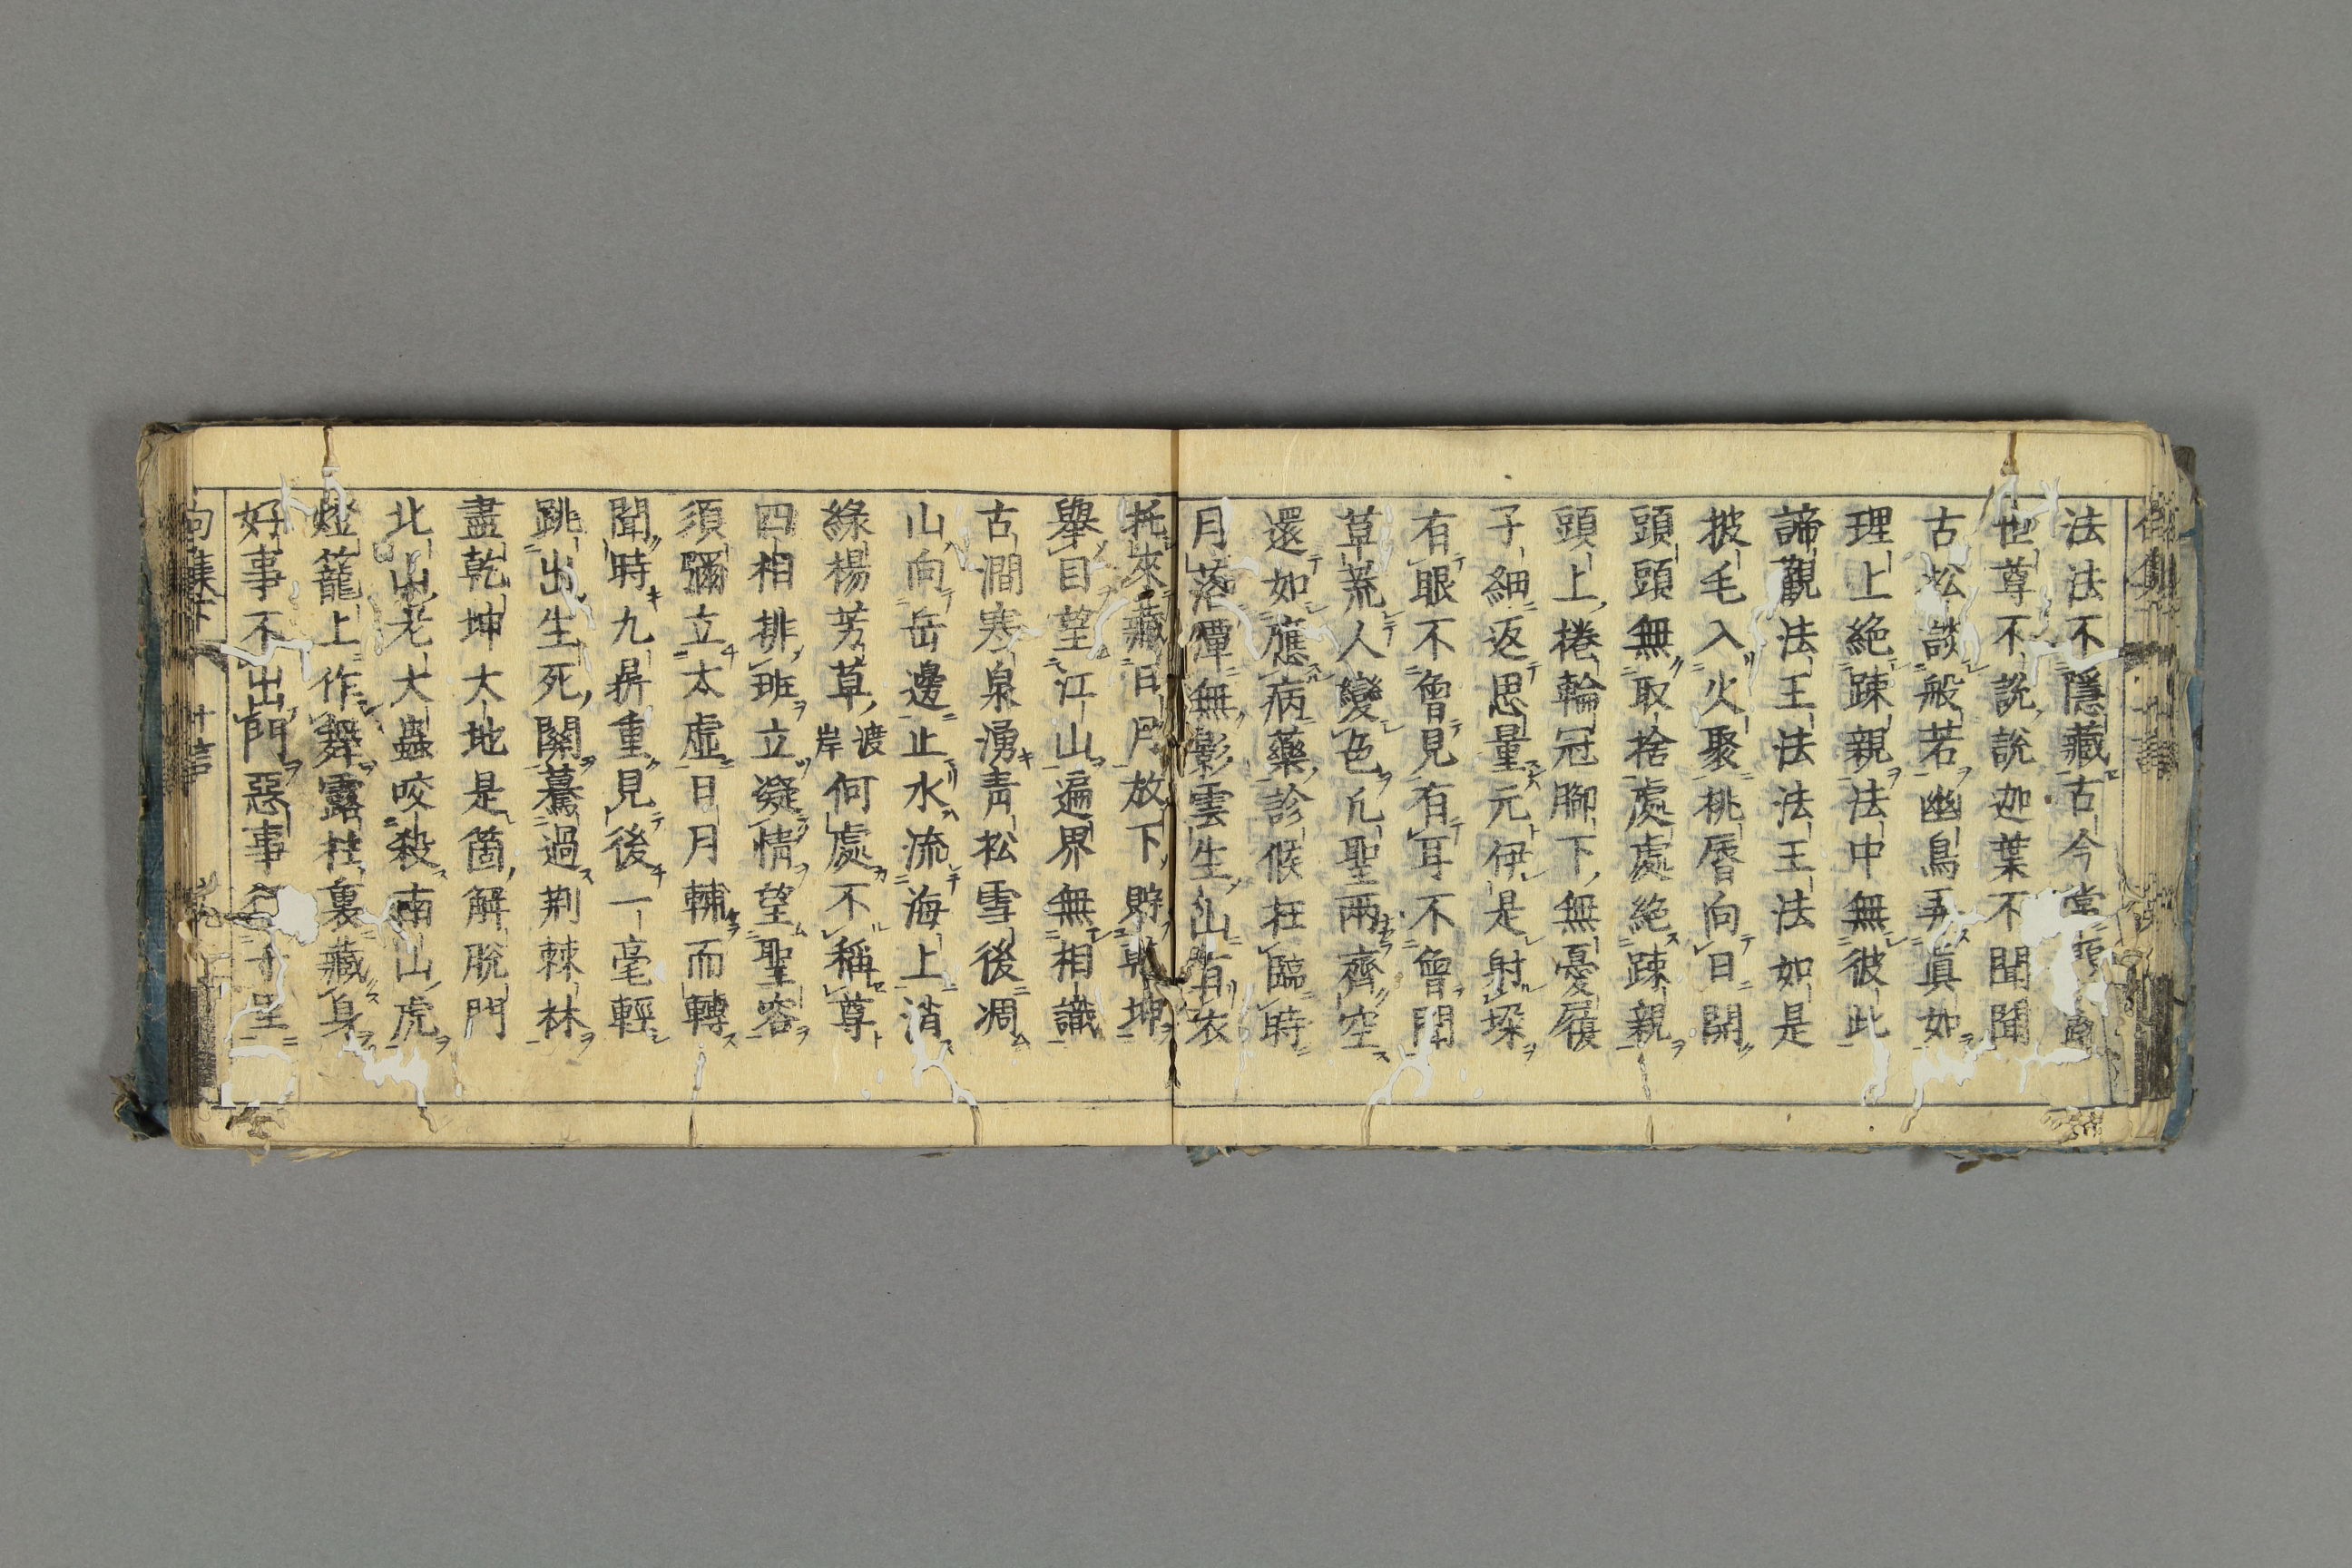 法法不隱藏古今常
世尊不說說迦葉不聞聞
古松談般若幽鳥弄眞如
理上絕踈親法中無彼此
諦觀法王法法王法如是
披毛入火聚桃唇向日開
頭頭無取捨處處絕踈親
頭上捲輪冠脚下無憂履
子細返思量元伊是射垜
有眼不曾見有耳不曾聞
草荒人變色凢聖兩齊空
還如應病藥診候在臨時
月落潭無影雲生山有衣
托來藏日月放下貯乾坤
擧目望江山遍界無相識
古澗寒泉湧靑松雪後凋
山向岳邊止水流海上消
綠楊芳草渡岸何處不稱尊
四相排班立凝情望聖容
須彌立太虛日月輔而轉
聞時九鼎重見後一毫輕
跳出生死關驀過荆棘林
盡乾坤大地是箇解脫門
北山老大蟲咬殺南山虎
燈籠上作舞露柱裏藏身
好事不出門惡事千里
句集下